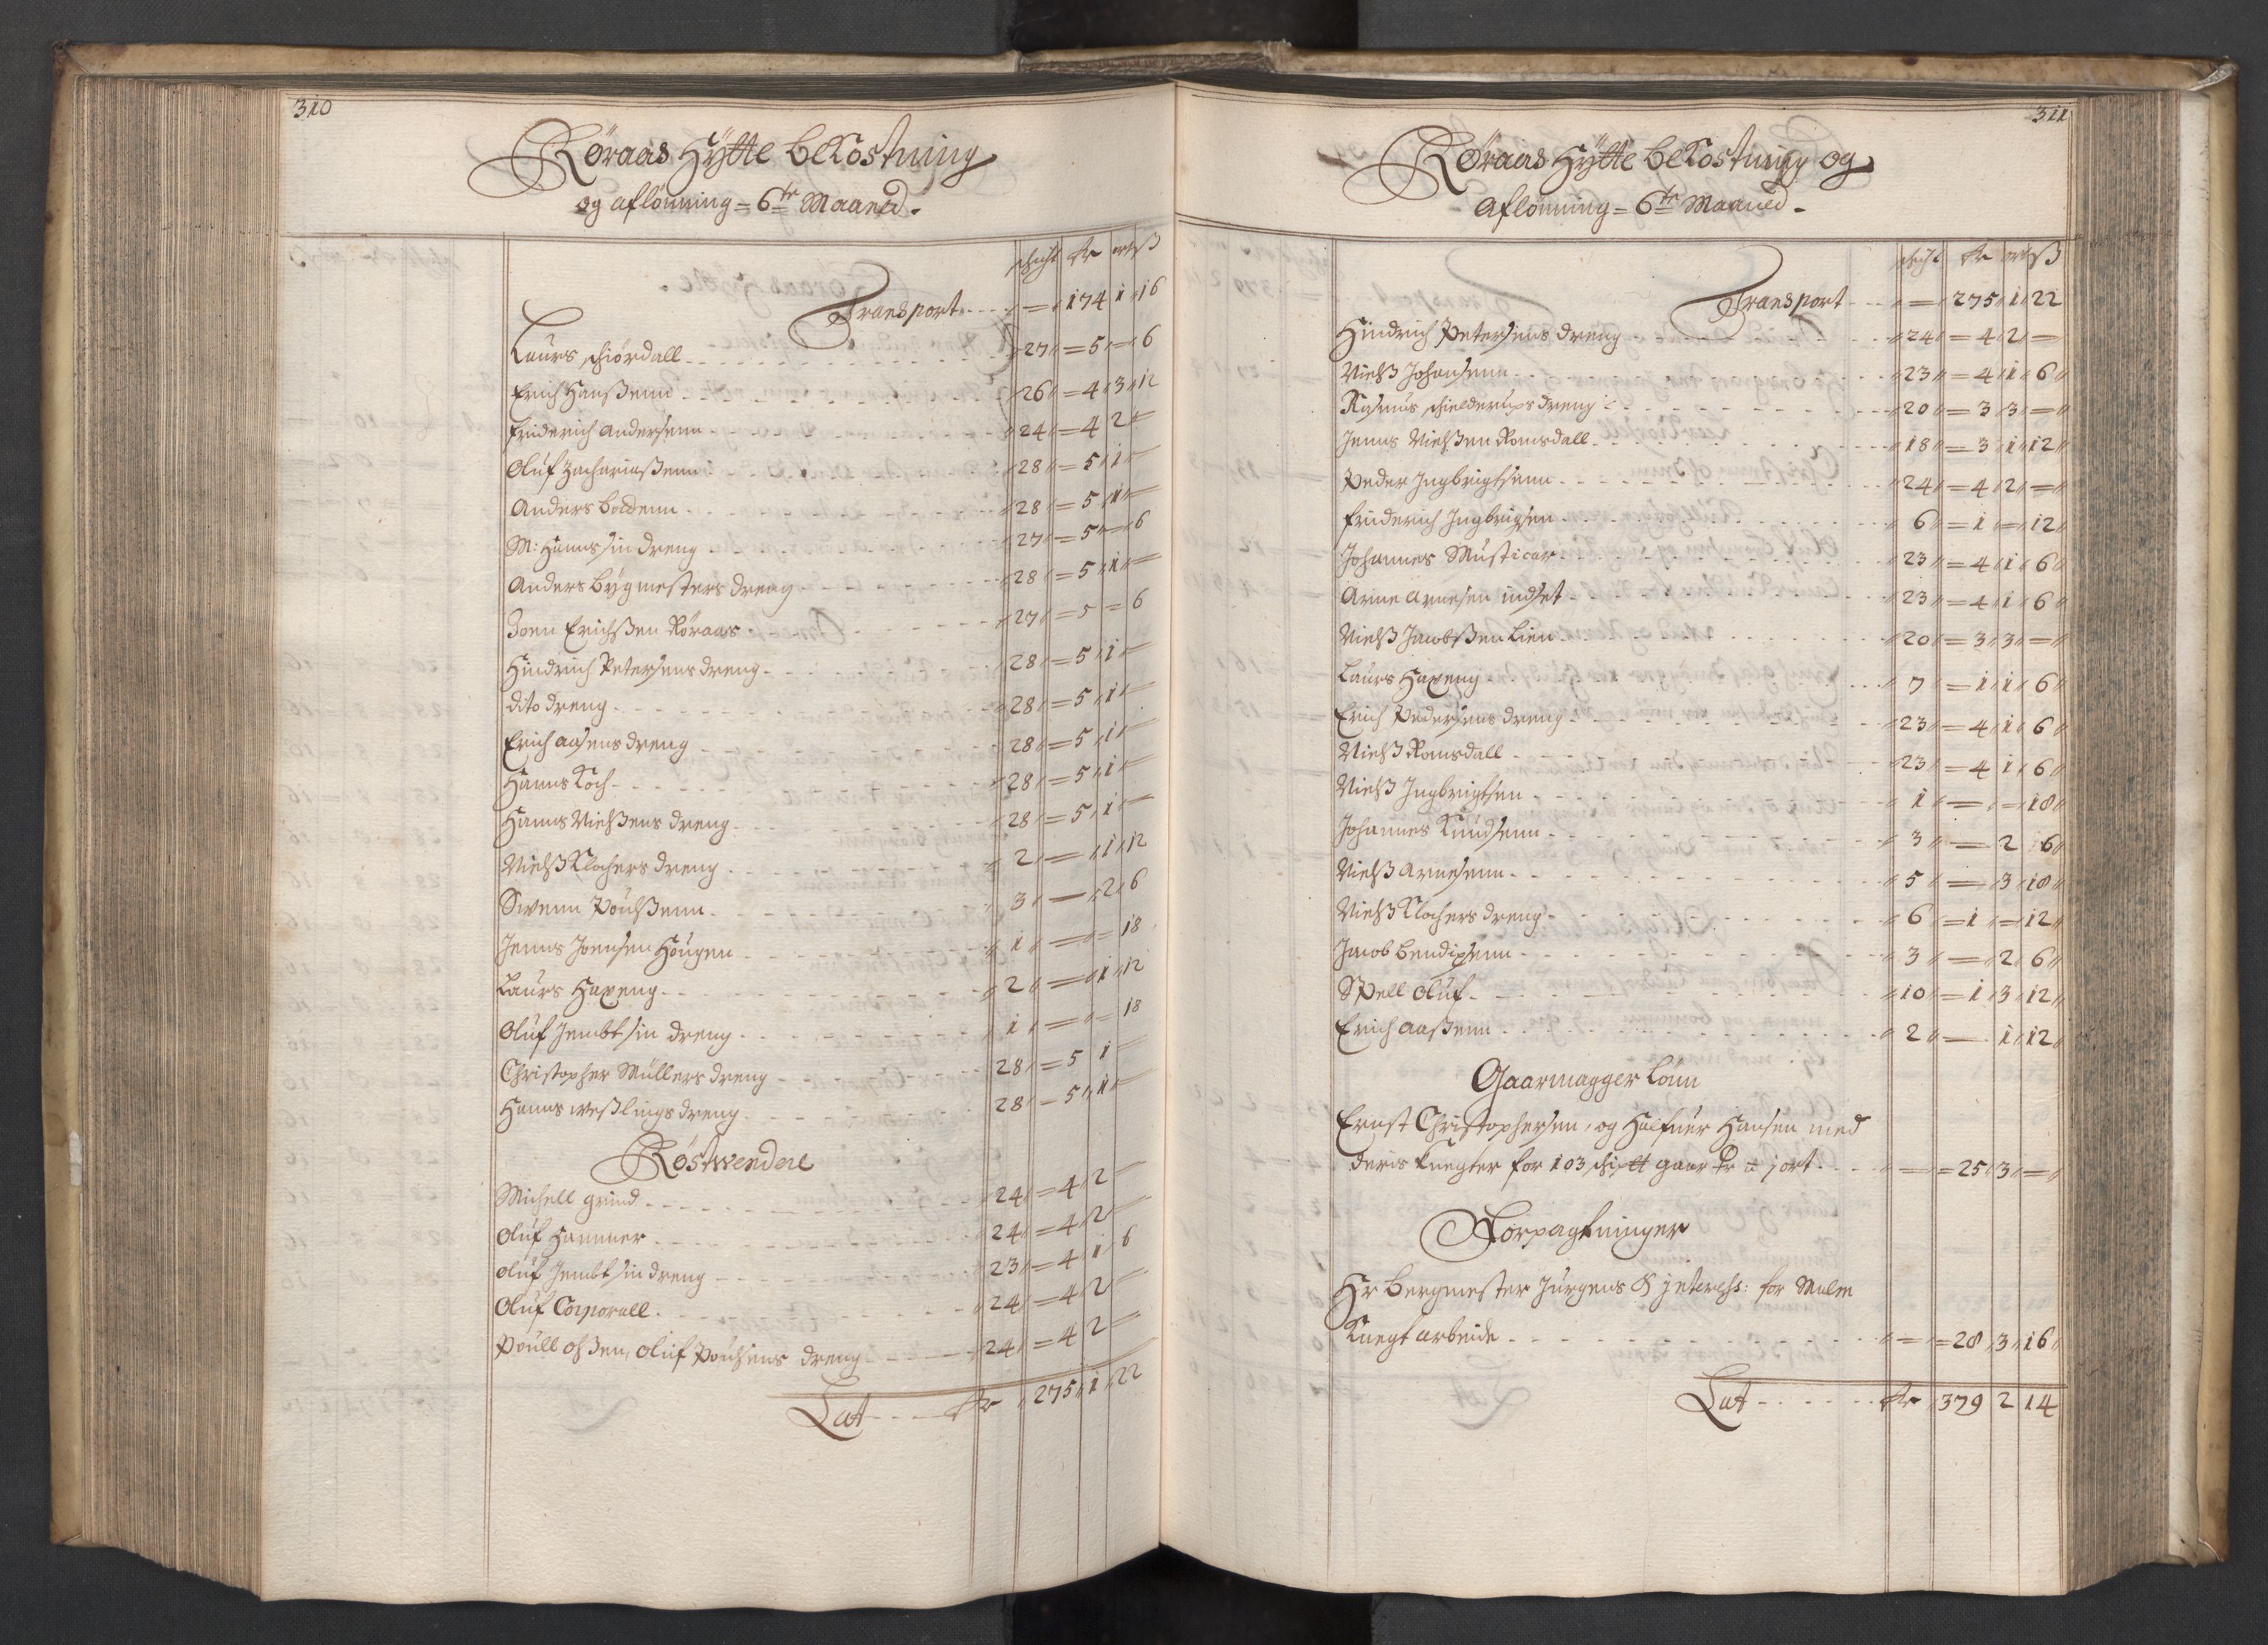 310
Røraas Hÿtte beKostning
og aflønning = 6te Maaned.
schicht dr ort ß
Transport - - - = 174 1 16
Laurs schiördall - - - 27 = 5 = 6
Erich Hanßenn - - - 26 = 4 3 12
Friderich Andersenn - - - 24 = 4 2 =
Oluf Zachariaßenn - - - 28 = 5 1 =
Anders Boldenn - - - 28 = 5 1 =
M: Hanns sin dreng - - - 27 = 5 = 6
Anders bÿgmesters dreng - - - 28 = 5 1 =
Joen Erichßen Røraas - - - 27 = 5 = 6
Hindrich Petersens dreng - - - 28 = 5 1 =
dito dreng - - - 28 = 5 1 =
Erich aasens dreng - - - 28 = 5 1 =
Hanns Koch - - - 28 = 5 1 =
Hanns Nielßens dreng - - - 28 = 5 1 =
Nielß Klochers dreng - - - 2 = 1 12
Swenn Poulßenn - - - 3 = 2 6
Jenns Joensen Hougen - - - 1 = = 18
Laurs Haxeng - - - 2 = 1 12
Oluf Jembt sin dreng - - - 1 = = 18
Christopher Müllers dreng - - - 28 = 5 1 =
Hanns weßlings dreng - - - 28 = 5 1 =
Røstwendere
Michell grind - - - 24 = 4 2 =
Oluf Hammer - - - 24 = 4 2 =
oluf Jembt sin dreng - - - 23 = 4 1 6
Oluf Corporall - - - 24 = 4 2 =
Poull olßen, oluf Poulsens dreng - - - 24 = 4 2 =
Lat - - - dr 275 1 22
311
Røraas Hÿtte beKostning og
Aflønning = 6te Maaned.
schicht dr ort ß
Transport - - - = 275 1 22
Hindrich Petersens dreng - - - 24 = 4 2 =
Nielß Johansenn - - - 23 = 4 1 6
Rasmus schielderups dreng - - - 20 = 3 3 =
Jenns Nielßen Romsdall - - - 18 = 3 1 12
Peder Jngbrigtsenn - - - 24 = 4 2 =
Friderich Jngbrigsen - - - 6 = 1 = 12
Johannes Musticar - - - 23 = 4 1 6
Arne Arnesen indset - - - 23 = 4 1 6
Nielß Jacobßen Lien - - - 20 = 3 3 =
Laurs Haxeng - - - 7 = 1 1 6
Erich Pedersens dreng - - - 23 = 4 1 6
Nielß Romsdall - - - 23 = 4 1 6
Nielß Jngbrigtsen - - - 1 = = 18
Johannes Knudsenn - - - 3 = 2 6
Nielß Arnesenn - - - 5 = 3 18
Nielß Klochers dreng - - - 6 = 1 = 12
Jacob bendixsenn - - - 3 = 2 6
SPell oluf - - - 10 = 1 3 12
Erich aaßenn - - - 2 = 1 12
Gaarmagger Lönn
Ernst Christophersen, og Halfuer Hansen med
deris knegter for 103 sch℔ gaar dr a 1 ort - - - = 25 3 =
Forpagtninger
Hr bergmester Jürgens & jnteress: for Malm
Knegt arbeide - - - = 28 3 16
Lat - - - dr 379 2 14